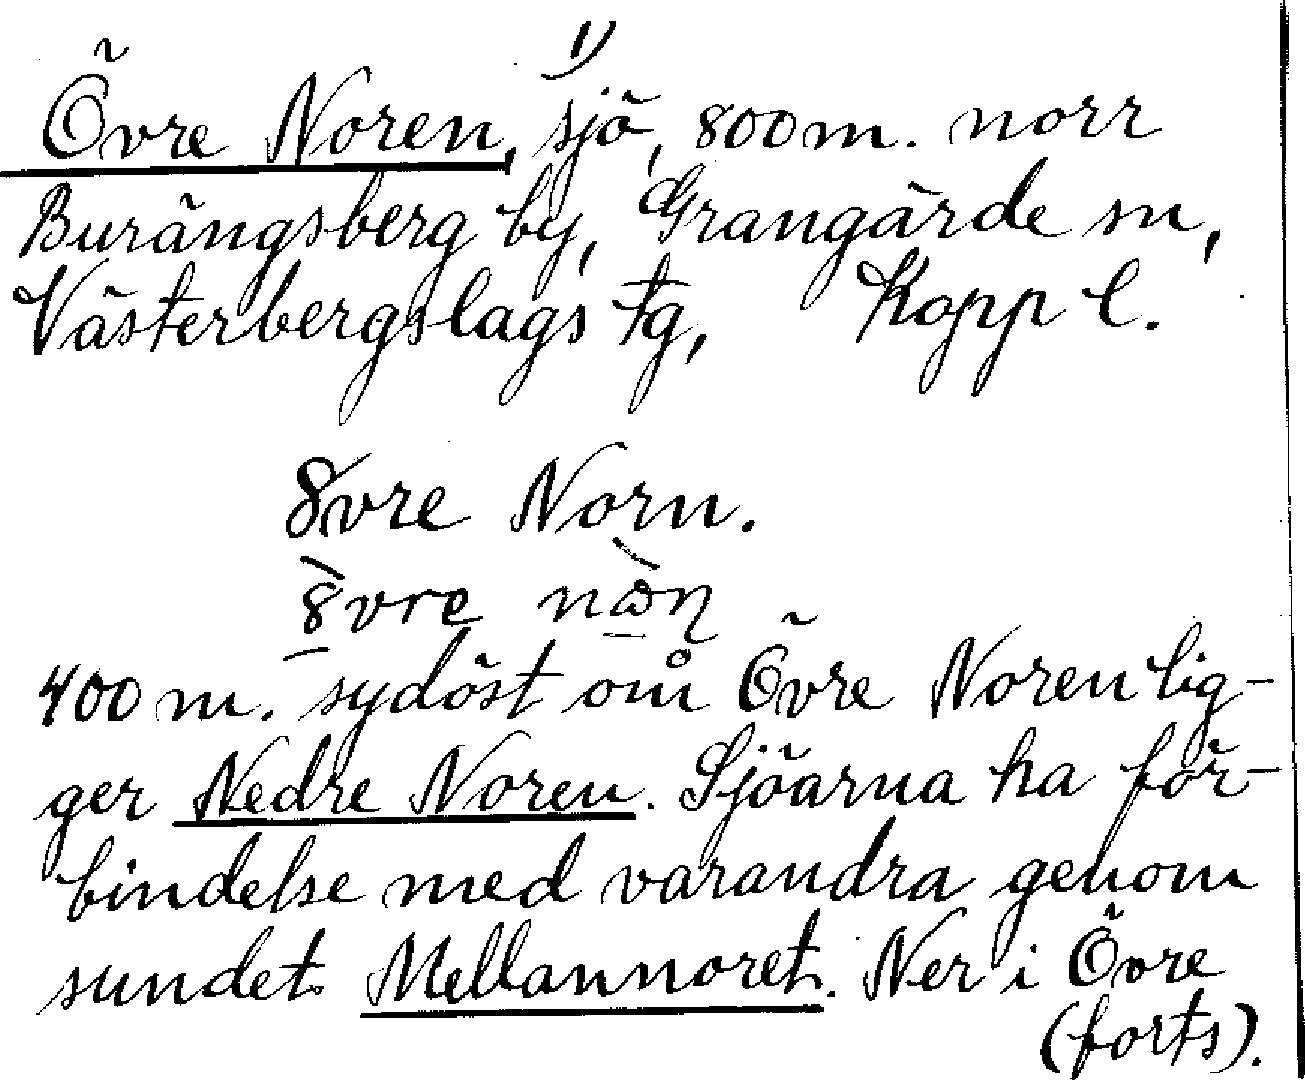 Övre Noren, ¹⁾ sjö, 800 m. norr
Burängsberg by, Grangärde sn,
Västerbergslags tg, Kopp l.
8vre Norn.
8̀vre nὼn̥
400 m. sydöst om Övre Noren lig-
ger Nedre Noren. Sjöarna ha för-
bindelse med varandra genom
sundet Mellannoret. Ner i Övre
(forts).